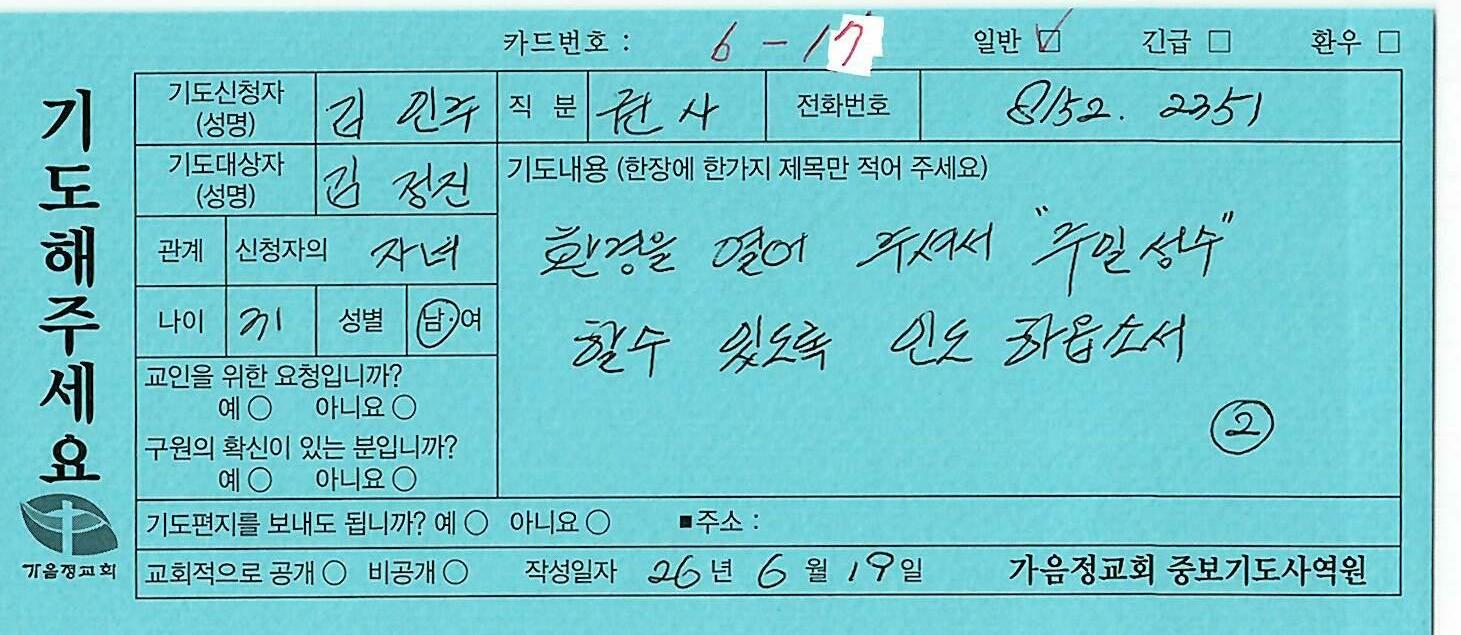 카드번호 : 6-17 일반 ☑ 긴급 □ 환우 □
기도해주세요
기도신청자 (성명) 김 민주 직 분 권사 전화번호 8152. 2351
기도대상자 (성명) 김 정진
관계 신청자의 자녀
나이 31 성별 남·여
교인을 위한 요청입니까?
예 ○ 아니요 ○
구원의 확신이 있는 분입니까?
예 ○ 아니요 ○
기도내용 (한장에 한가지 제목만 적어 주세요)
환경을 열어 주셔서 "주일성수"
할수 있도록 인도 하옵소서
②
기도편지를 보내도 됩니까? 예 ○ 아니요 ○ ■주소 :
교회적으로 공개 ○ 비공개 ○ 작성일자 26년 6월 19일 가음정교회 중보기도사역원
가음정교회